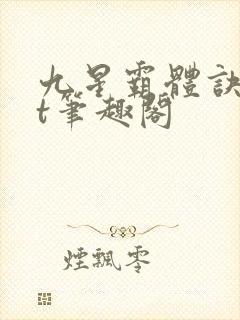 九星霸體訣
t筆趣閣
煙飄零